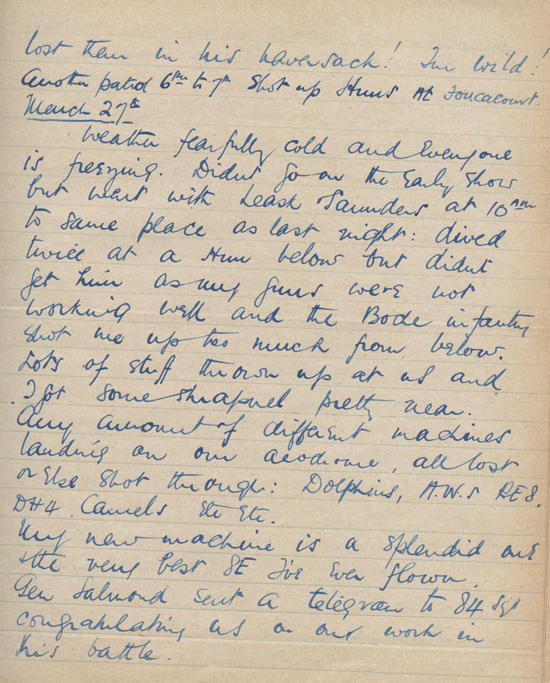 lost them in his haversack! I'm wild!
Another patrol 6pm to 7pm Shot up Huns At Foucacourt.
March 27th
Weather fearfully cold and Everyone
is freezing. Didn't go on the Early Show
but went with Leask Saunders at 10am
to same place as last night: dived
twice at a Hun below but didnt
get him as my guns were not
working well and the Boche infantry
shot me up too much from below.
Lots of stuff thrown up at us and
I got some shrapnel pretty near.
Any amount of different machines
landing on our aerodrome, all lost
or Else shot through: Dolphins, A.W.s RE8.
DH4 Camels Etc Etc.
My new machine is a splendid one
& the very best SE I've Ever flown.
Gen Salmond sent a telegram to 84 Sqd
congratulating us on our work in
this battle.